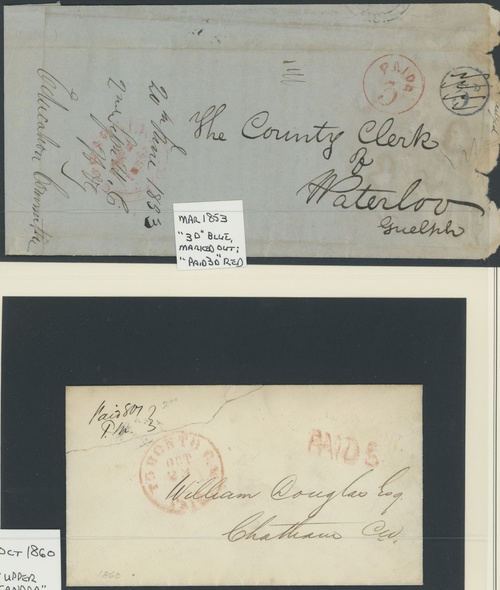 PAID
3
The County Clerk
of
Waterloo
Guelph
20th June 1853
Education Committee
MAR 1853
"3D" BLUE,
MARKED OUT;
"PAID 3D" RED
Paid 807
3
TORONTO C.W.
OCT
PAID
William Douglas Esq.
Chatham CW.
1860
OCT 1860
UPPER
CANADA"